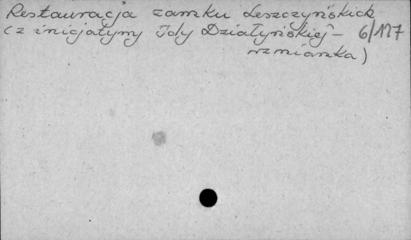 Restauracja zamku Leszczyńskich
(z inicjatywy Idy Działyńskiej – 6/127
wzmianka)